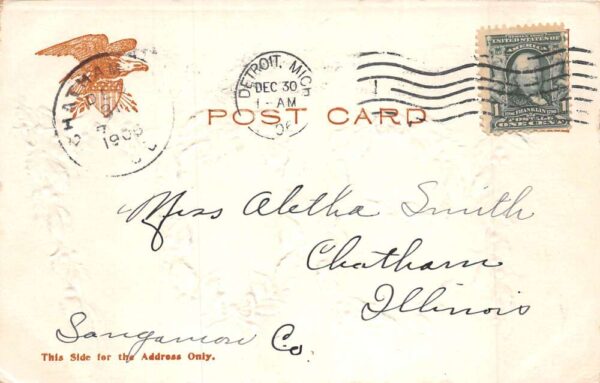 CHATHAM
1906
DETROIT, MICH
DEC 30
1-AM
1
POST CARD
UNITED STATES OF
AMERICA
FRANKLIN
ONE CENT
Miss Aletha Smith
Chatham
Illinois
Sangamon Co.
This Side for the Address Only.